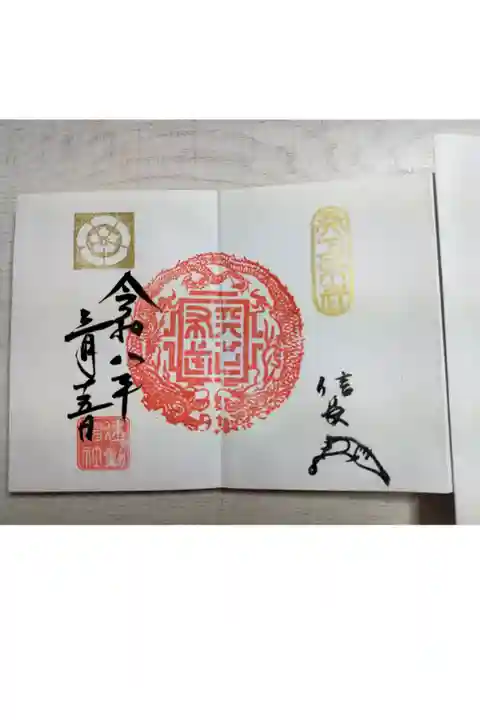 信長
天下
布武
令和八年
三月十五日